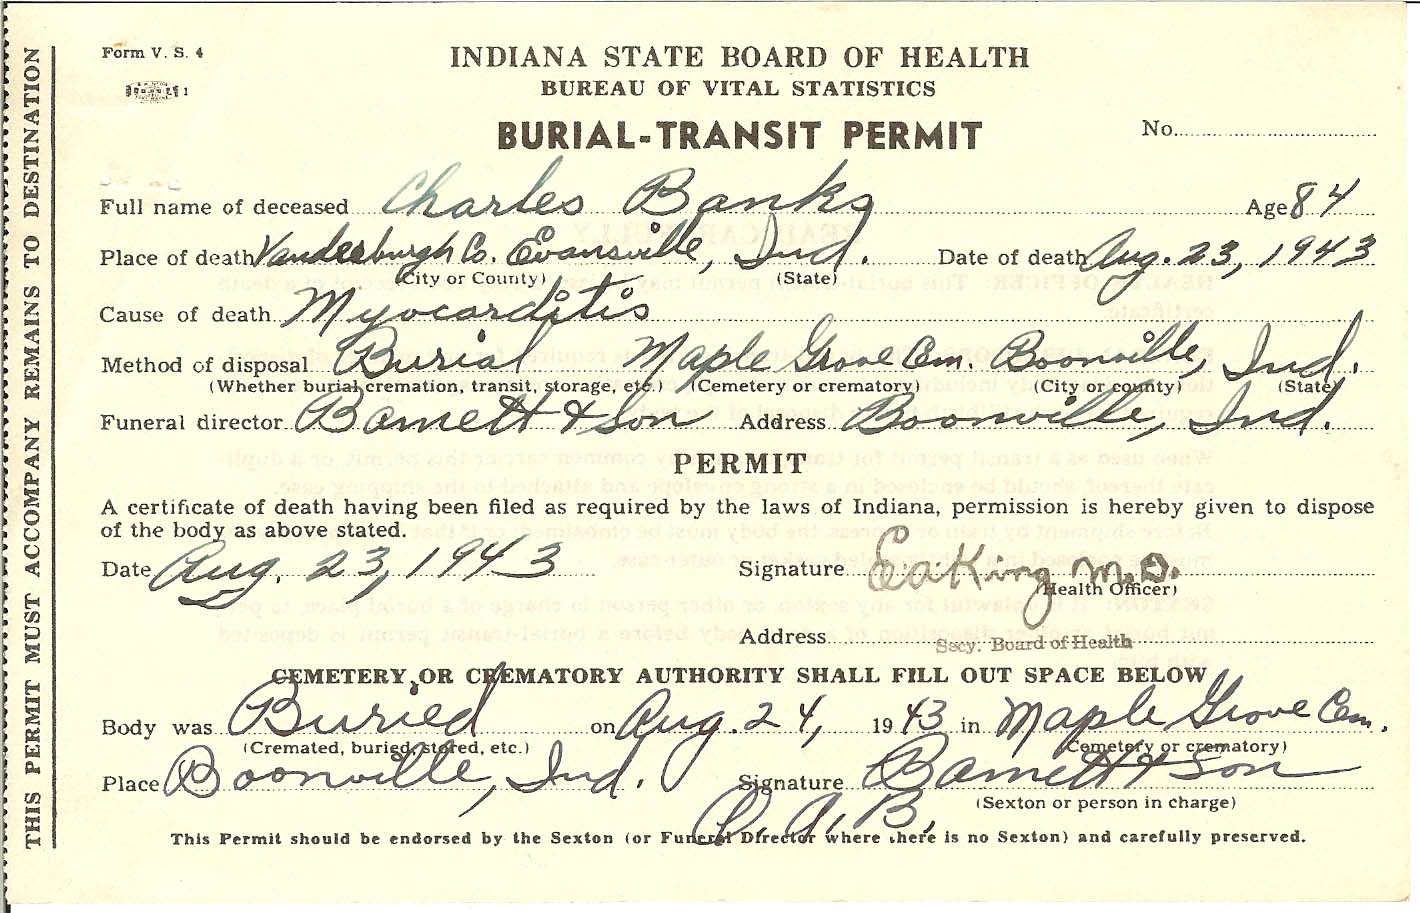 Form V. S. 4
1
INDIANA STATE BOARD OF HEALTH
BUREAU OF VITAL STATISTICS
BURIAL-TRANSIT PERMIT
No.
THIS PERMIT MUST ACCOMPANY REMAINS TO DESTINATION
Full name of deceased Charles Banks Age 84
Place of death Vanderburgh Co. Evansville, Ind. Date of death Aug. 23, 1943
(City or County) (State)
Cause of death Myocarditis
Method of disposal Burial Maple Grove Cem. Boonville, Ind.
(Whether burial, cremation, transit, storage, etc.) (Cemetery or crematory) (City or county) (State)
Funeral director Barnett & Son Address Boonville, Ind.
PERMIT
A certificate of death having been filed as required by the laws of Indiana, permission is hereby given to dispose
of the body as above stated.
Date Aug. 23, 1943 Signature King M.D.
(Health Officer)
Address
Secy. Board of Health
CEMETERY OR CREMATORY AUTHORITY SHALL FILL OUT SPACE BELOW
Body was Buried on Aug. 24, 1943 in Maple Grove Cem.
(Cremated, buried, stored, etc.) (Cemetery or crematory)
Place Boonville, Ind. Signature Barnett & Son
(Sexton or person in charge)
This Permit should be endorsed by the Sexton (or Funeral Director where there is no Sexton) and carefully preserved.